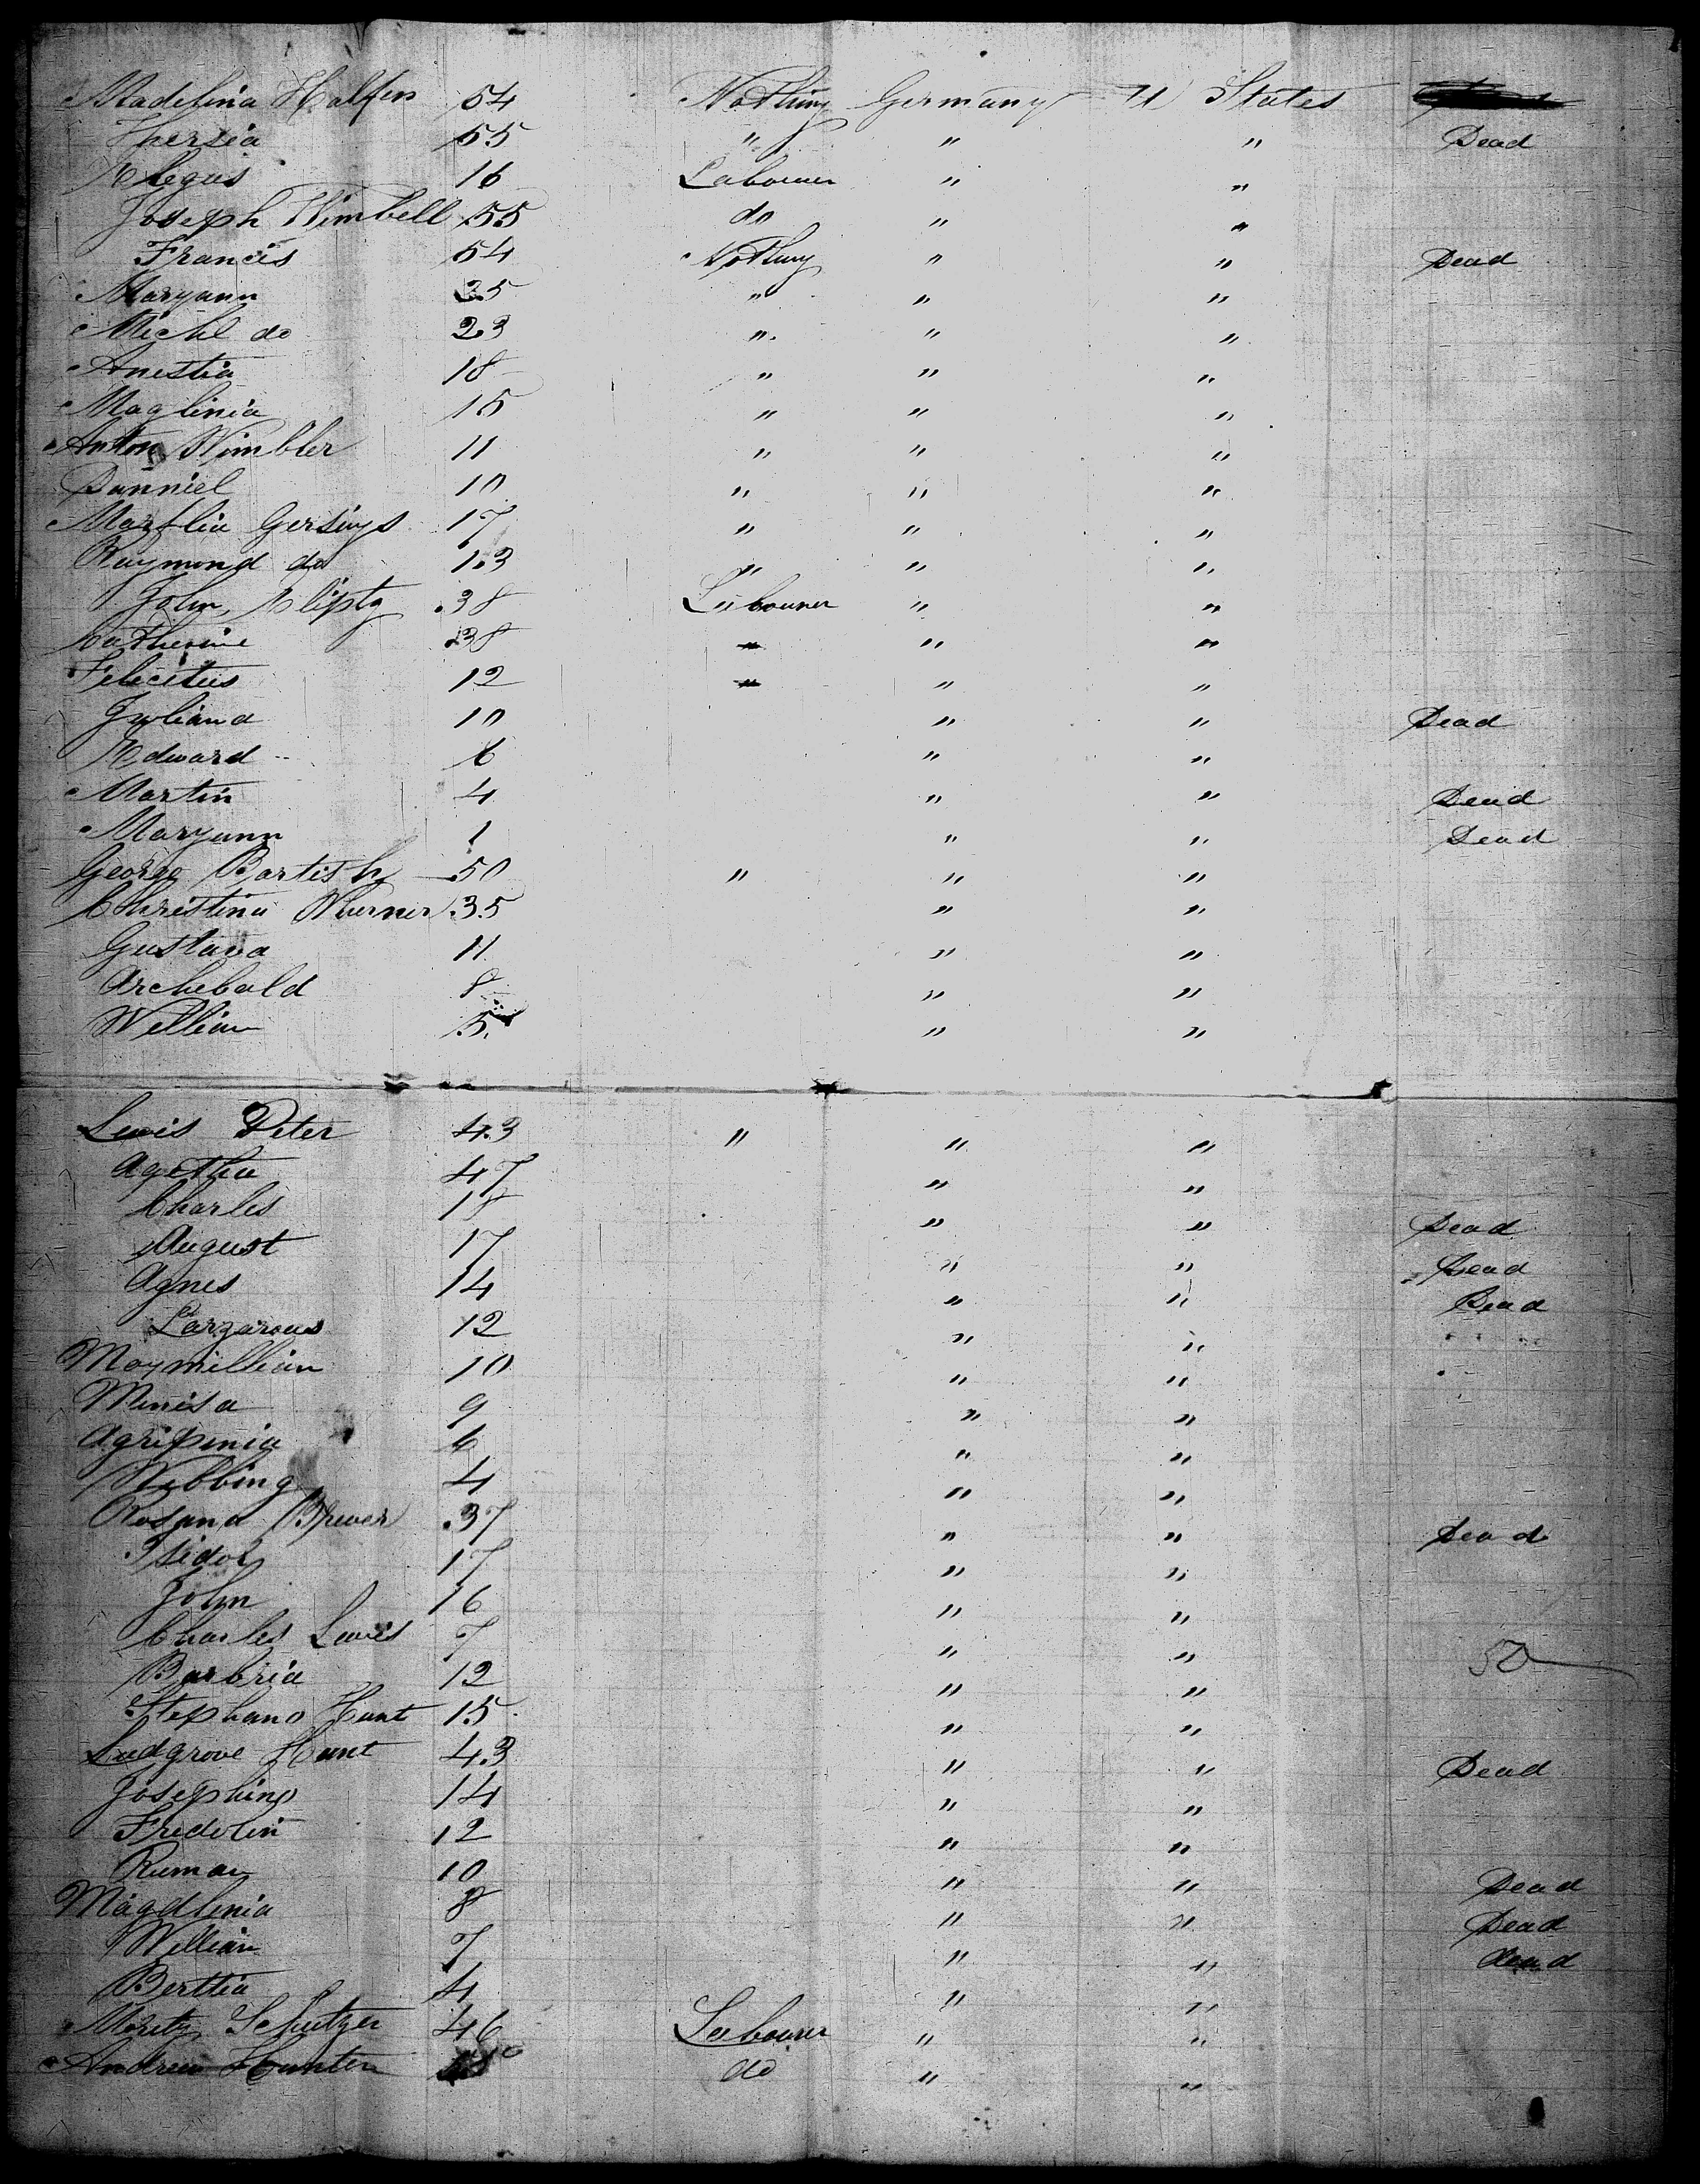 Madelina Halfin 54 Nothing Germany U States
Thersia 55 " " " Dead
16 Labourer " "
Joseph Wimbell 55 do " "
Francis 54 Nothing " " Dead
Maryann 35 " " "
Michl do 23 " " "
Anestia 18 " " "
Maglinia 15 " " "
Anton Wimbler 11 " " "
Danniel 10 " " "
Gersings 17 " " "
Raymond do 13 " " "
John Cliptz 38 Labourer " "
Catherine 38 " " "
Felicitus 12 " " "
Juliana 10 " " Dead
Edward 6 " "
Martin 4 " " Dead
Maryann 1 " " Dead
George Bartish 50 " " "
Christina 35 " "
Gustava 11 " "
Archebald 8 " "
William 5 " "
Lewis Peter 43 " " "
Agetha 47 " "
Charles 18 " " Dead
August 17 " " Dead
Agnes 14 " " Dead
Larzarous 12 " "
Maymillian 10 " "
Menisa 9 " "
Agripinia 6 " "
Webbing 4 " "
Rosana Brewer 37 " " Dead
Isidol 17 " "
John 16 " "
Charles Lewis 7 " " 50
Barbria 12 " "
Stephano Hunt 15 " "
Ludgrove Hunt 43 " " Dead
Josephing 14 " "
Fredolin 12 " "
Ruman 10 " " Dead
Magdlinia 8 " " Dead
William 7 " " dead
Berttia 4 " "
Mority Schutzer 46 Labourer " "
Andrew Hunter do " "